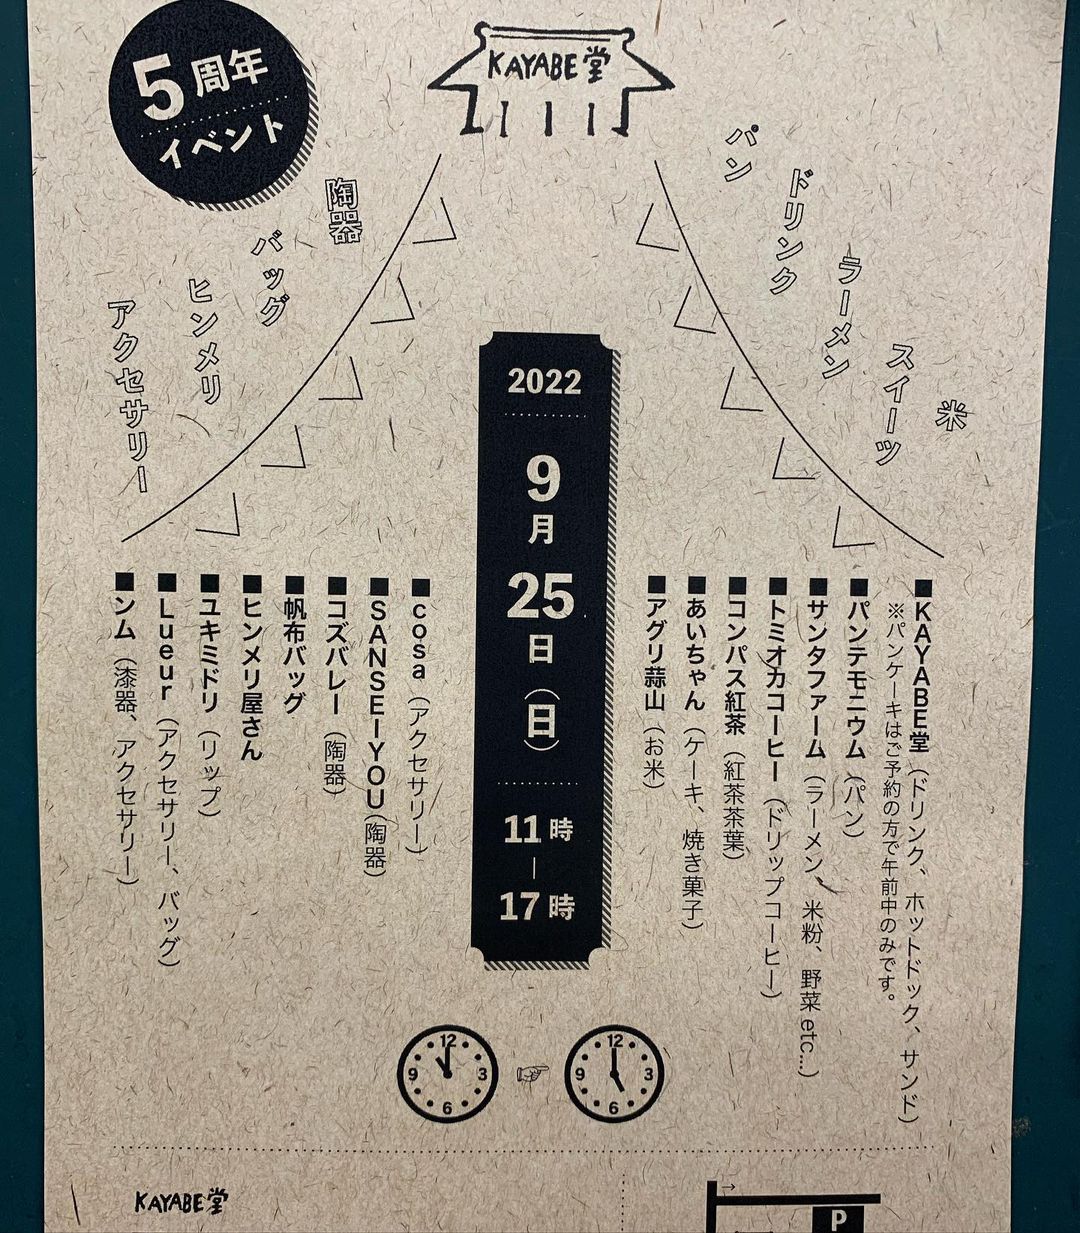 5周年
イベント
KAYABE堂
パン
ドリンク
ラーメン
スイーツ
米
陶器
バッグ
ヒンメリ
アクセサリー
2022
9
月
25
日
(日)
11時
17時
■KAYABE堂(ドリンク、ホットドック、サンド)
※パンケーキはご予約の方で午前中のみです。
■パンテモニウム(パン)
■サンタファーム(ラーメン、米粉、野菜 etc...)
■トミオカコーヒー(ドリップコーヒー)
■コンパス紅茶(紅茶茶葉)
■あいちゃん(ケーキ、焼き菓子)
■アグリ蒜山(お米)
■cosa(アクセサリー)
■SANSEIYOU(陶器)
■コズバレー(陶器)
■帆布バッグ
■ヒンメリ屋さん
■ユキミドリ(リップ)
■Lueur(アクセサリー、バッグ)
■ンム(漆器、アクセサリー)
12
3
6
9
12
3
6
9
KAYABE堂
P